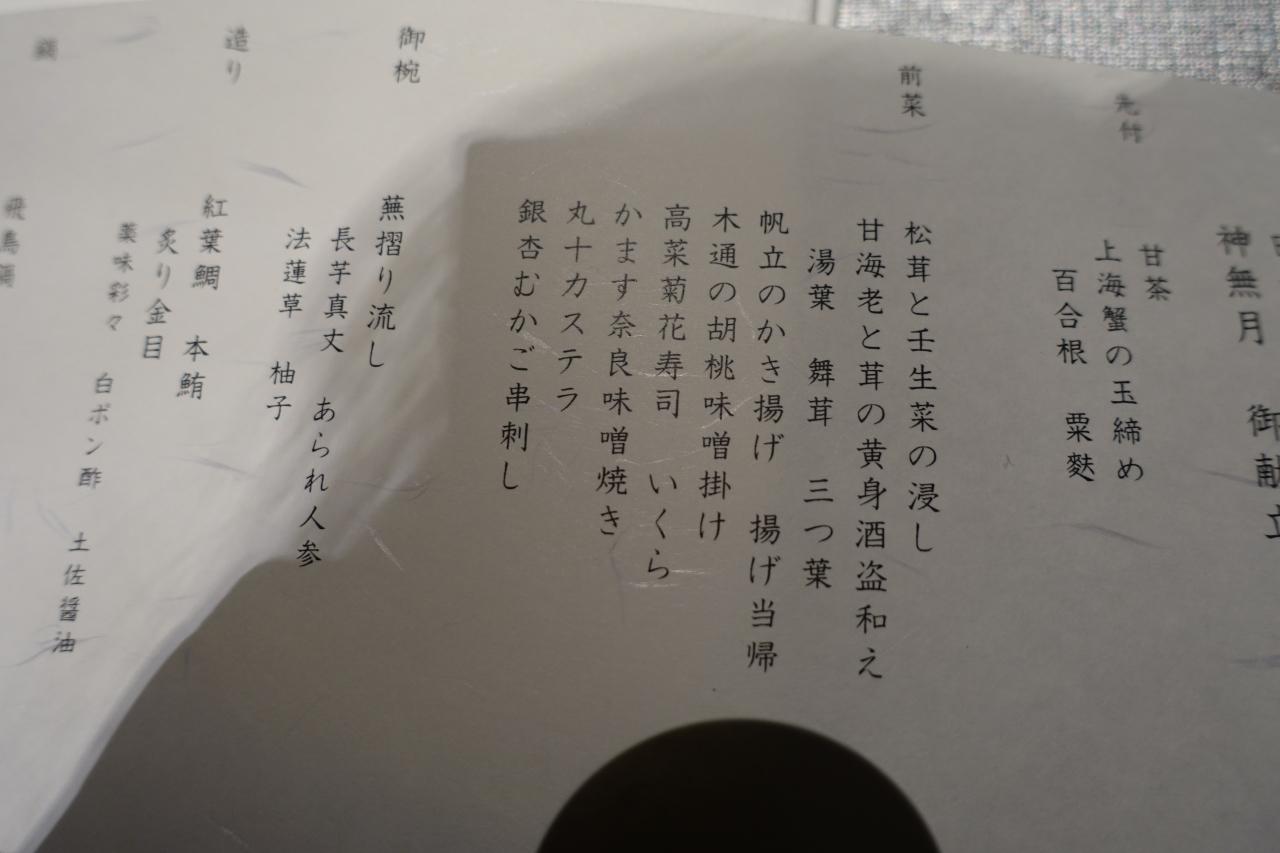 神無月 御献立
先付
甘茶
上海蟹の玉締め
百合根 粟麩
前菜
松茸と壬生菜の浸し
甘海老と茸の黄身酒盗和え
湯葉 舞茸 三つ葉
帆立のかき揚げ 揚げ当帰
木通の胡桃味噌掛け
高菜菊花寿司 いくら
かます奈良味噌焼き
丸十カステラ
銀杏むかご串刺し
御椀
蕪摺り流し
長芋真丈 あられ人参
法蓮草 柚子
造り
紅葉鯛 本鮪
炙り金目
薬味彩々 白ポン酢 土佐醤油
鍋
飛鳥鍋